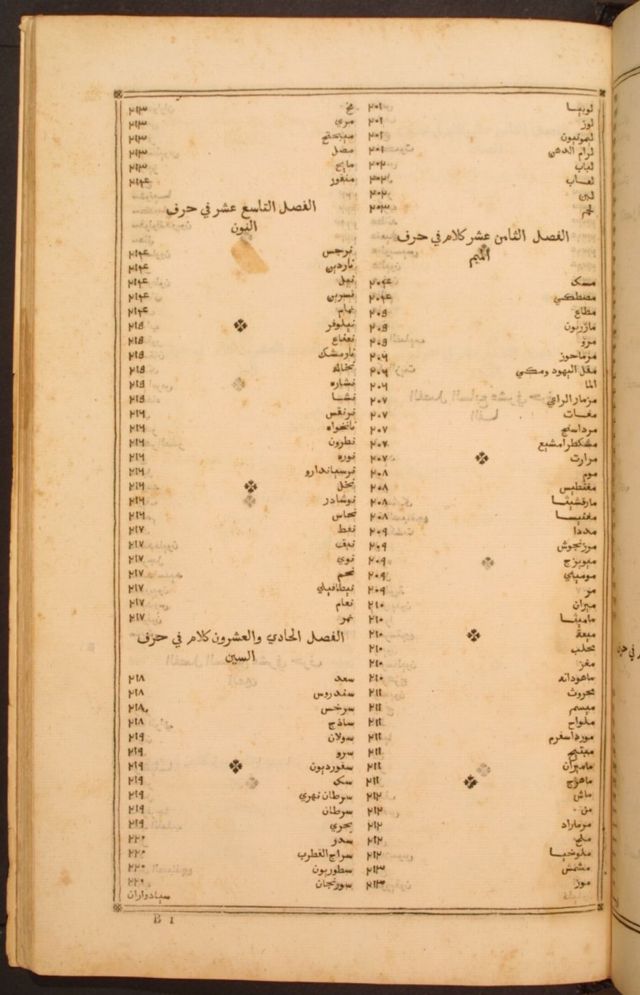 لوبيا ٢٠١
لوز ٢٠١
ليمونيون ٢٠١
لزام الذهب ٢٠١
لباب ٢٠٢
لعاب ٢٠٢
لبن ٢٠٢
لحم ٢٠٣
الفصل الثامن عشر كلام في حرف
الميم
مسك ٢٠٤
مصطكي ٢٠٤
مطاع ٢٠٥
مازريون ٢٠٥
مرو ٢٠٥
مرماحوز ٢٠٦
مقل اليهود ومكي ٢٠٦
الما ٢٠٦
مزمار الراعي ٢٠٧
مغاث ٢٠٧
مرداسنج ٢٠٧
مشكطرامشيع ٢٠٧
مرارت ٢٠٧
موم ٢٠٨
مغنطيس ٢٠٨
مارقشيثا ٢٠٨
مغنيسا ٢٠٨
مرزنجوش ٢٠٩
ميويزج ٢٠٩
موميآي ٢٠٩
مر ٢٠٩
ميران ٢١٠
ماميثا ٢١٠
ميعة ٢١٠
محلب ٢١٠
مغز ٢١٠
ماهودانه ٢١٠
محروث ٢١١
ميسم ٢١١
ملواح ٢١١
مورداسفرم ٢١١
ماميران ٢١١
ماهزج ٢١١
ماش ٢١٢
من ٢١٢
مرماراد ٢١٢
ملح ٢١٢
ملوخيا ٢١٢
مشمش ٢١٣
موز ٢١٣
مخ ٢١٣
مري ٢١٣
ميبختج ٢١٣
مصل ٢١٣
مايع ٢١٣
منثور ٢١٤
الفصل التاسع عشر في حرف
النون
نرجس ٢١٤
ناردين ٢١٤
نيل ٢١٤
نسرين ٢١٤
نمام ٢١٤
نيلوفر ٢١٥
نعناع ٢١٥
نارمشك ٢١٥
نخاله ٢١٥
نشاره ٢١٥
نشا ٢١٥
نانخواه ٢١٦
نطرون ٢١٦
نوره ٢١٦
نرسياندارو ٢١٦
نخل ٢١٦
نوشادر ٢١٦
نحاس ٢١٦
نفط ٢١٧
نبق ٢١٧
نوي ٢١٧
نيطافيلي ٢١٧
نعام ٢١٧
نمر ٢١٧
الفصل الحادي والعشرون كلام في حرف
السين
سعد ٢١٨
سندروس ٢١٨
سرخس ٢١٨
ساذج ٢١٨
سولان ٢١٩
سرو ٢١٩
سقورديون ٢١٩
سك ٢١٩
سرطان نهري ٢١٩
سرطان ٢١٩
بحري ٢١٩
سدر ٢٢٠
سراج القطرب ٢٢٠
سطوريون ٢٢٠
سورنجان ٢٢٠
سيادواران
B 1